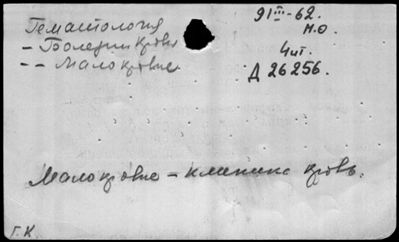 Гематология
— Болезни крови
— — Малокровие.
91 III-62.
М.О.
Чит.
Д 26256.
Малокровие — клиника кровь.
Г.К